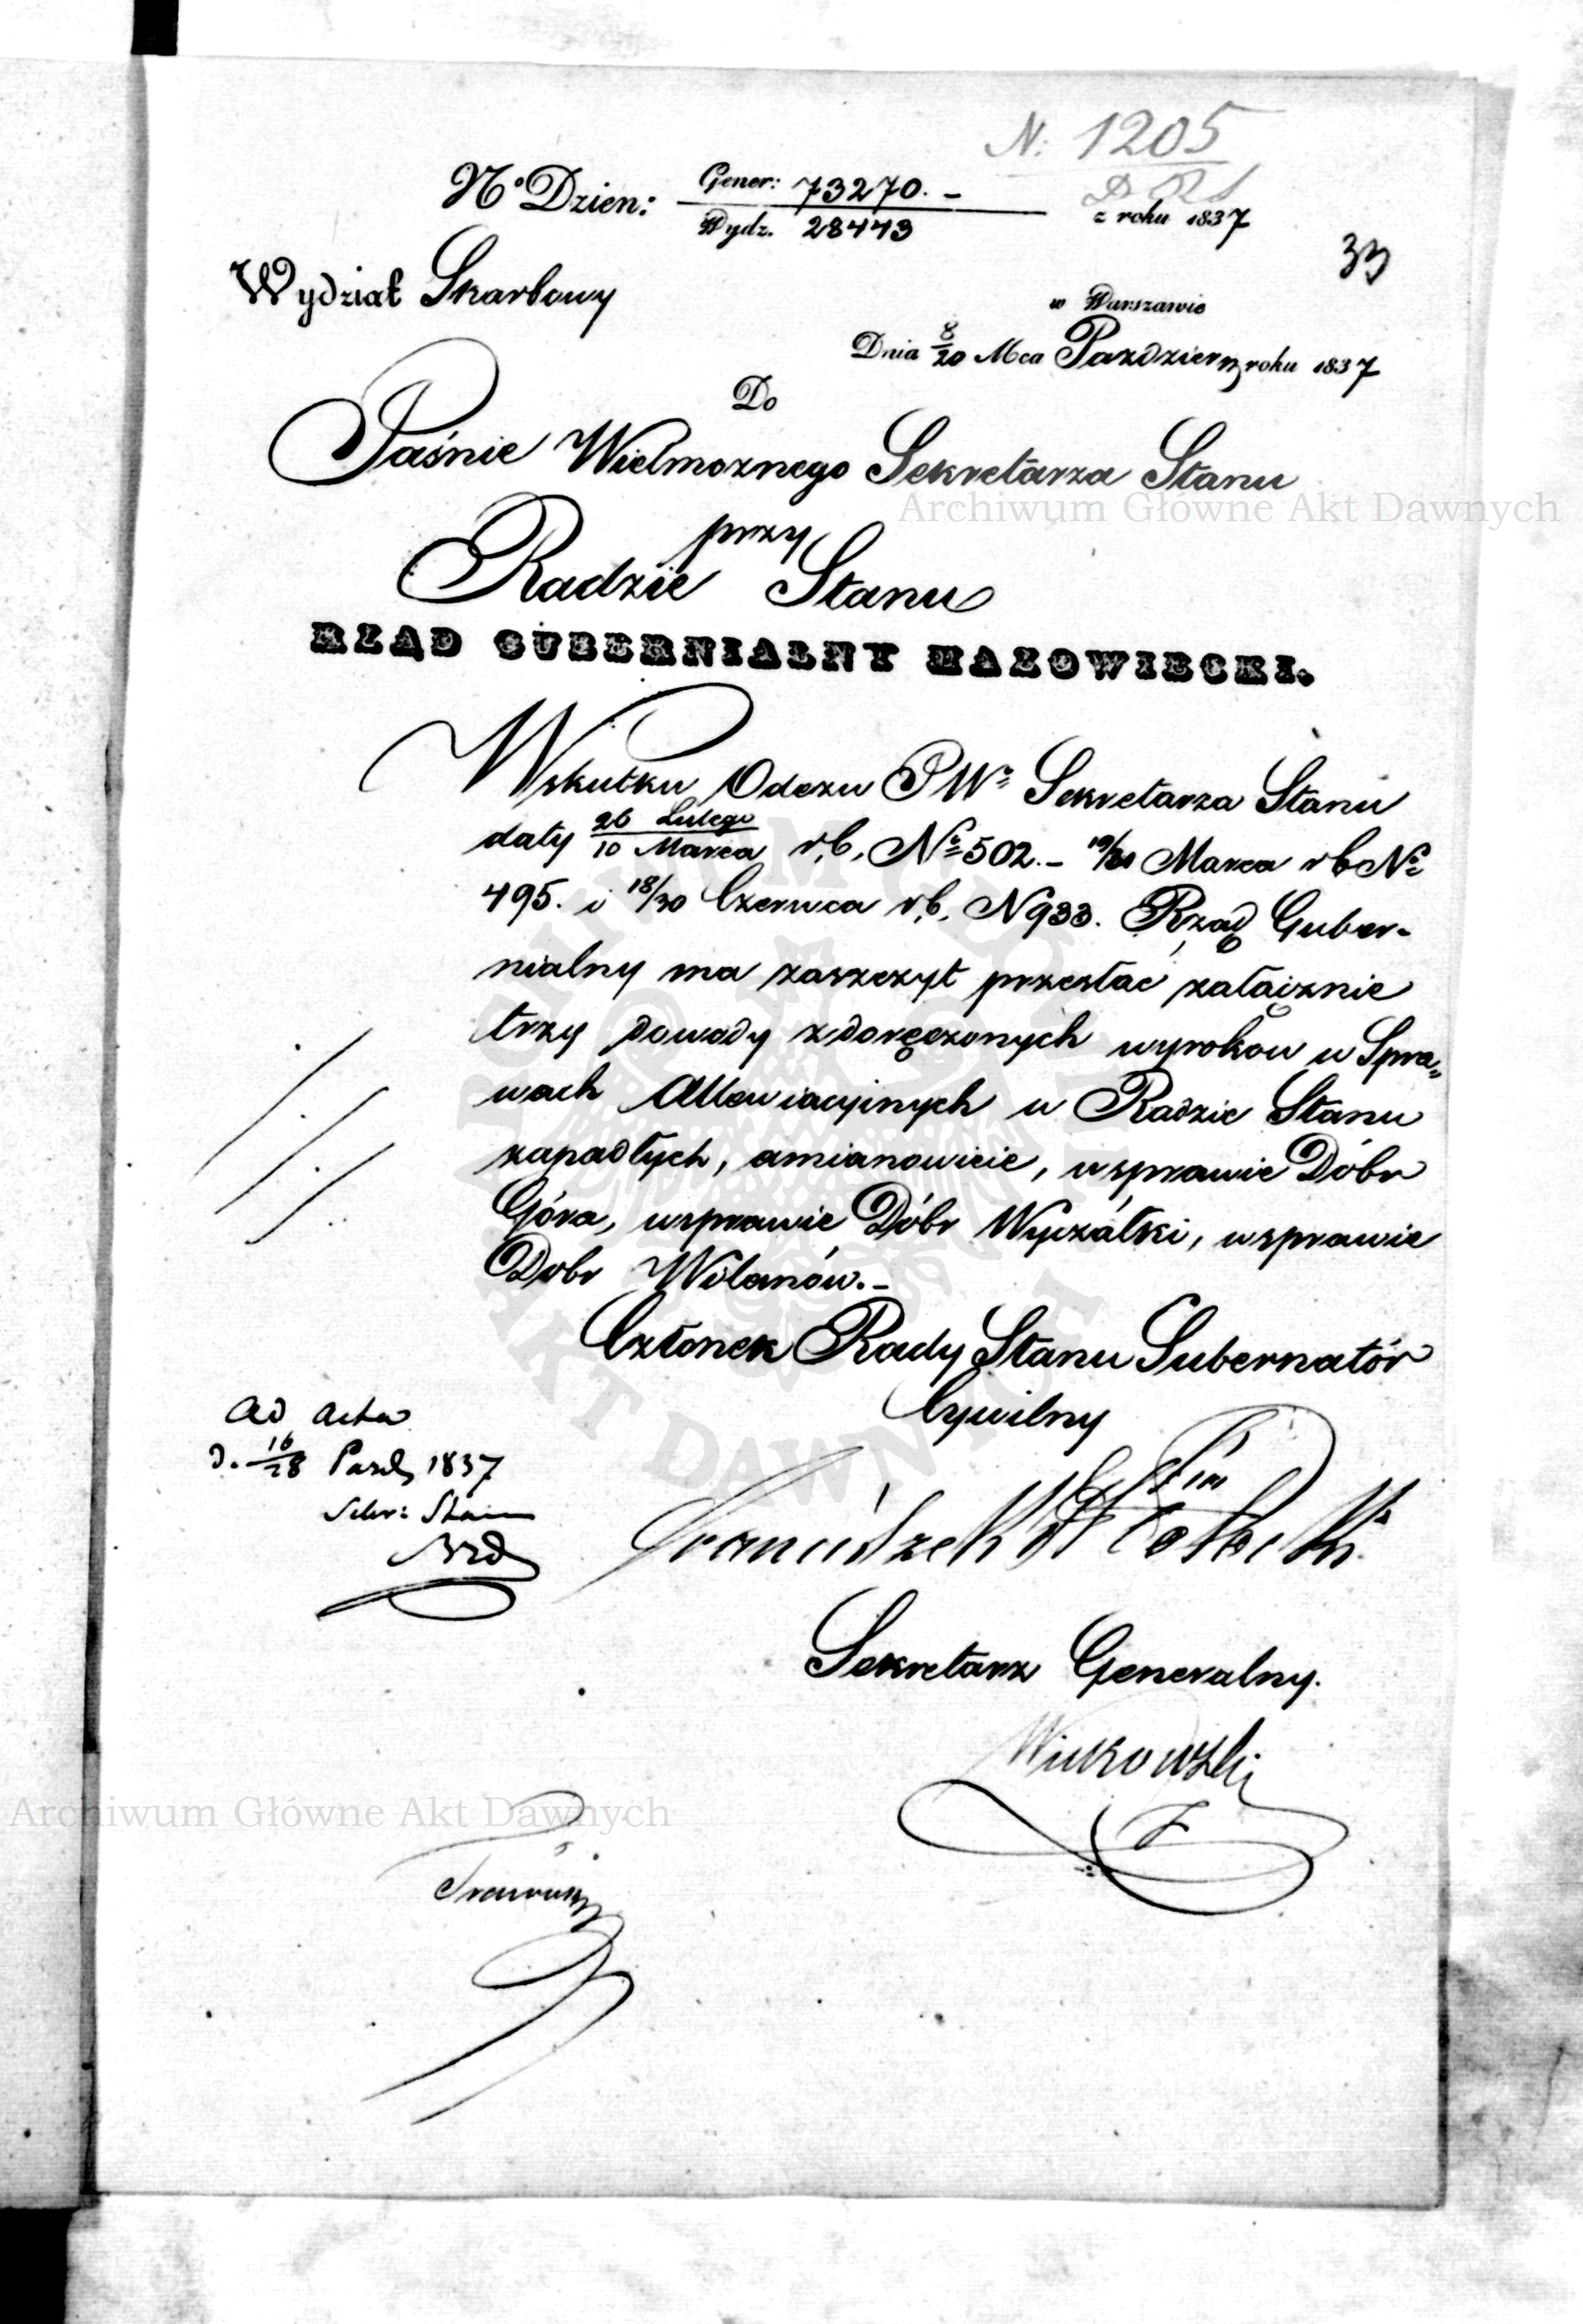 N: 1205
No Dzien: Gener: 73270. –
Wydz. 28443
z roku 1837
33
Wydział Skarbowy
w Warszawie
Dnia 8/20 Mca Październ roku 1837
Do
Jaśnie Wielmoznego Sekretarza Stanu
przy
Radzie Stanu
RZĄD GUBERNIALNY MAZOWIECKI.
Wskutku Odezw JWo Sekretarza Stanu
daty 26 Lutego/10 Marca r,b, No 502. – 19/31 Marca r b No
495. i 18/30 Czerwca r,b, N 933. Rząd Guber-
nialny ma zaszczyt przesłać załącznie
trzy dowody z doręczonych wyroków w Spra„
wach Allewiacyjnych w Radzie Stanu
zapadłych, amianowicie, w sprawie Dóbr
Góra, w sprawie Dóbr Wyczałki, w sprawie
Dobr Wilanów. –
Członek Rady Stanu Gubernatór
Cywilny
Ad Acta
d. 16/28 Pazd 1837
Sekr: Stanu
Franciszek Potocki
Sekretarz Generalny.
Archiwum Główne Akt Dawnych
Archiwum Główne Akt Dawnych